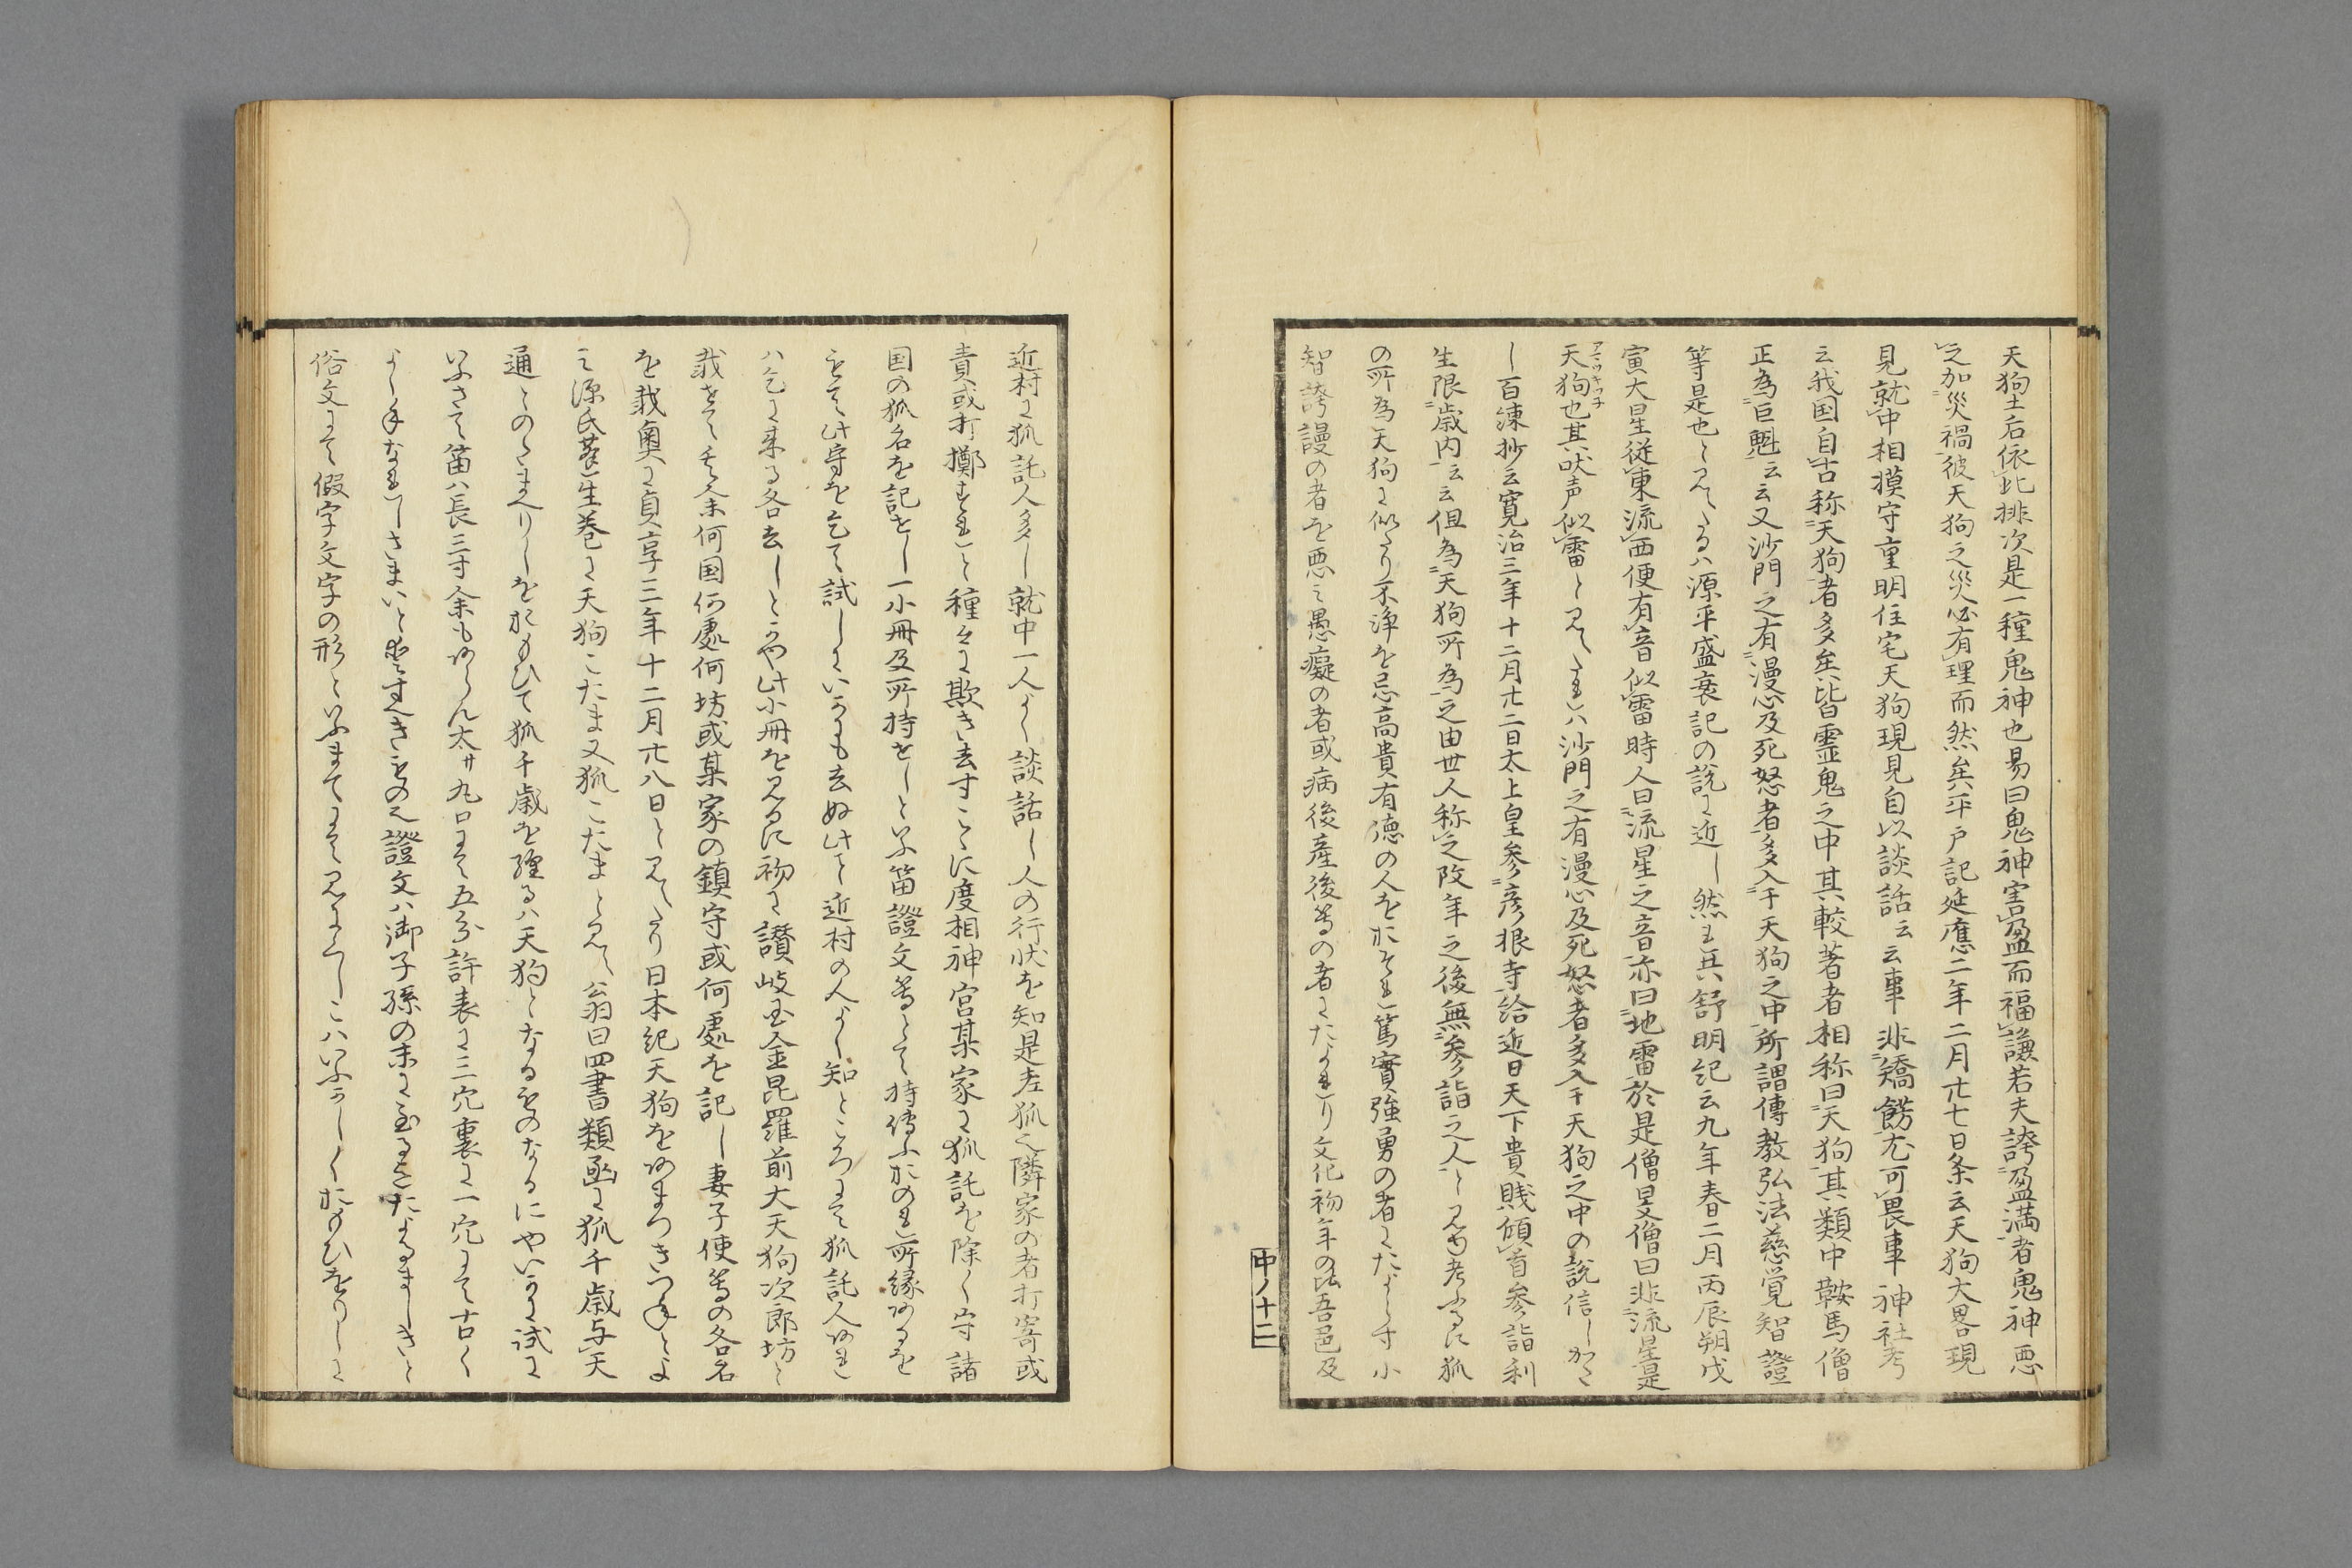 天狗土后依比排次是一種鬼神也易曰鬼神害盈而福謙若夫誇盈満者鬼神悪
之加災禍彼天狗之災必有理而然矣平戸記延應二年二月廿七日条云天狗大畧現
見就中相摸守重明住宅天狗現見自以談話云云事非矯餝尤可畏事神社考
云我国自古称天狗者多矣皆霊鬼之中其較著者相称曰天狗其類中鞍馬僧
正為巨魁云云又沙門之有漫心及死怒者多入于天狗之中所謂傳教弘法慈覚智證
等是也と見へたるハ源平盛衰記の説に近し然れ共舒明紀云九年春二月丙辰朔戊
寅大星従東流西便有音似雷時人曰流星之音亦曰地雷於是僧旻僧曰非流星是
天狗也其吠声似雷と見へたれハ沙門之有漫心及死怒者多入于天狗之中の説信しかた
アマツキツネ
し百練抄云寛治三年十二月廿二日太上皇参彦根寺給近日天下貴賎傾首参詣利
生限歳内云云但為天狗所為之由世人称之改年之後無参詣之人と見ゆ考ふるに狐
の所為天狗に似たり不浄を忌高貴有徳の人をおそれ篤實強勇の者にたよらす小
智誇謾の者を悪み愚癡の者或病後産後等の者にたよれり文化初年の比吾邑及
中ノ十二
近村に狐託人多し就中一人よく談話し人の行状を知是左狐之隣家の者打寄或
責或打擲すれと種々に欺き去すこゝに度相神宮某家に狐託を除く守諸
国の狐名を記せし一小冊及所持せしといふ笛證文等とて持傳ふおのれ所縁あるを
もて此守を乞て試しにいつれも去ぬ此こと近村の人よく知ところにて狐託人あれ
ハ乞に来る各去しとかや此小冊を見るに初に讃岐国金毘羅前大天狗次郎坊と
載せて其余何国何處何坊或某家の鎮守或何處を記し妻子使等の各名
を載奥に貞享三年十二月廿八日と見へたり日本紀天狗をあまつきつねとよ
み源氏蓬生巻に天狗こたま又狐こたまと見へ翁曰四書類函に狐千歳与天
通とのたまへりしをおもひて狐千歳を経るハ天狗となるものなるにやいかに試に
いふさて笛ハ長三寸余もあらん太サ九口にて五分許表に三穴裏に一穴にて古く
よしなれしさまいと愛すへきものに證文ハ御子孫の末に至るまてたよるましきと
俗文にて假字文字の形といふまてにて見にくしこハいふかしくおもひをりしに